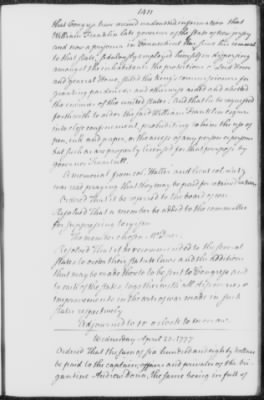 1411
that Congress have received undoubted information that
William Franklin late governor of the state of New Jersey
and now a prisoner in Connecticut has since his removal
to that state, sedulously employed himself in dispersing
amongst the inhabitants the protections of Lord Howe
and General Howe, stiled the King's commissioners for
granting pardons &c and otherwise aided and abetted
the enemies of the united states, and that he be requested
forthwith to order the said William Franklin
into close confinement, prohibiting to him the use of
pen, ink and paper, or the access of any person or persons
but such as are properly licensed for that purpose by
governor Trumbull.
A memorial from col. Haller and lieut col
was read praying that they may be paid for
Ordered That it be referred to the board of war.
Resolved That a member be added to the committee
for suppressing
The member chosen Mr
Resolved That it be recommended to the several
states to order their statute laws and the additions
that may be made thereto to be sent to Congress and
to each of the states, together with all discoveries or
improvements in the arts of war made in such
states respectively.
Adjourned to 10 o'Clock to morrow.
Wednesday April 23. 1777
Ordered That the sum of six hundred and eighty dollars
be paid to the captain, officers and privates of the bri-
gantine Andrew Doria, the same being in full of